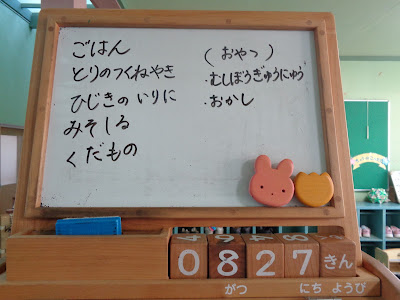 ごはん
とりのつくねやき
ひじきのいりに
みそしる
くだもの
(おやつ)
・むしぼうぎゅうにゅう
・おかし
0827きん
がつ にち ようび